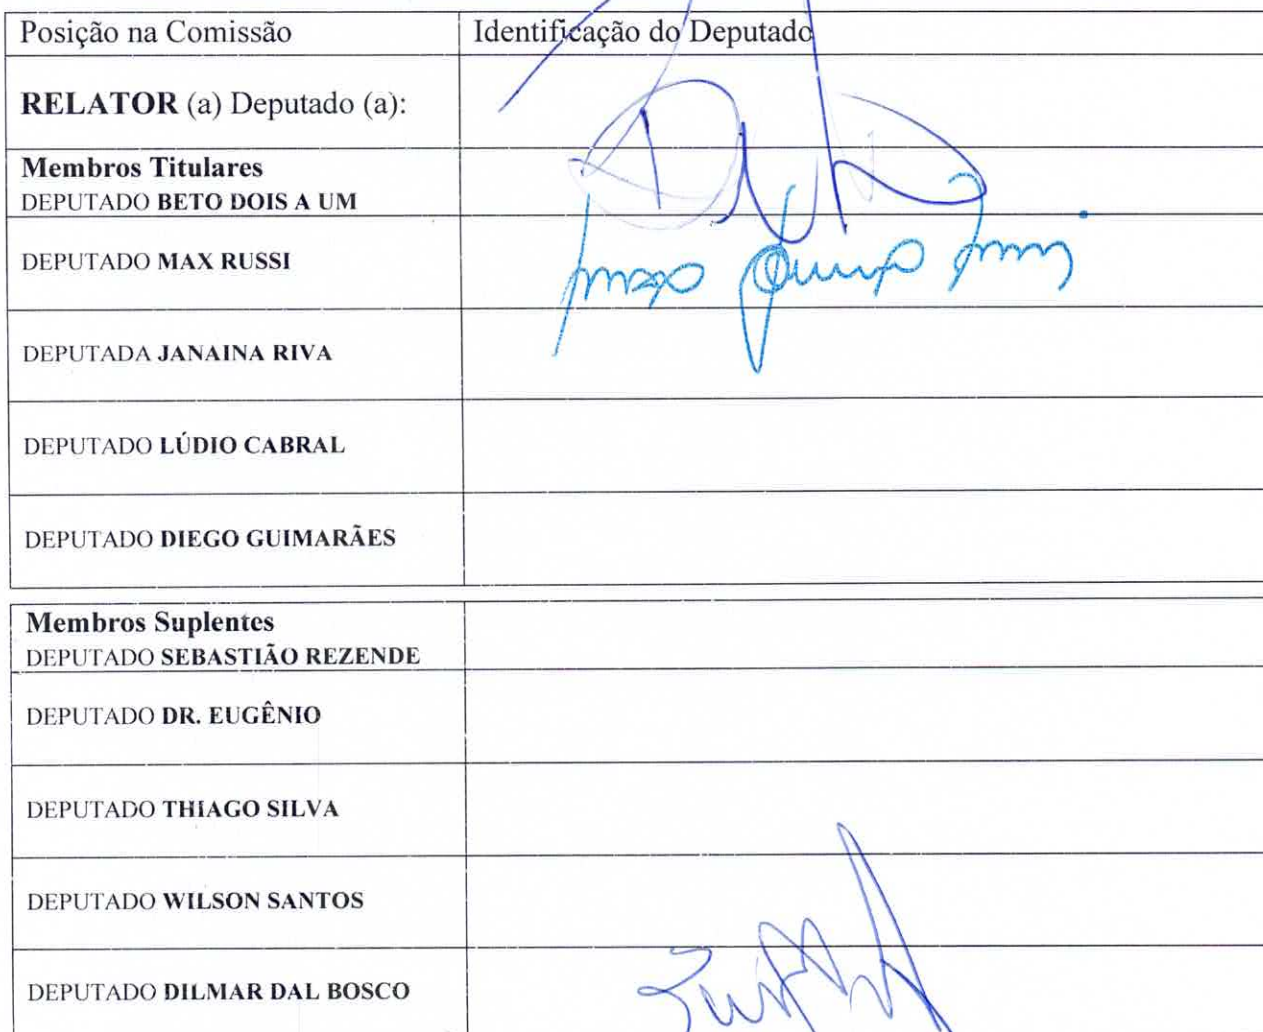 Posição na Comissão Identificação do Deputado
RELATOR (a) Deputado (a):
Membros Titulares
DEPUTADO BETO DOIS A UM
DEPUTADO MAX RUSSI
DEPUTADA JANAINA RIVA
DEPUTADO LÚDIO CABRAL
DEPUTADO DIEGO GUIMARÃES
Membros Suplentes
DEPUTADO SEBASTIÃO REZENDE
DEPUTADO DR. EUGÊNIO
DEPUTADO THIAGO SILVA
DEPUTADO WILSON SANTOS
DEPUTADO DILMAR DAL BOSCO